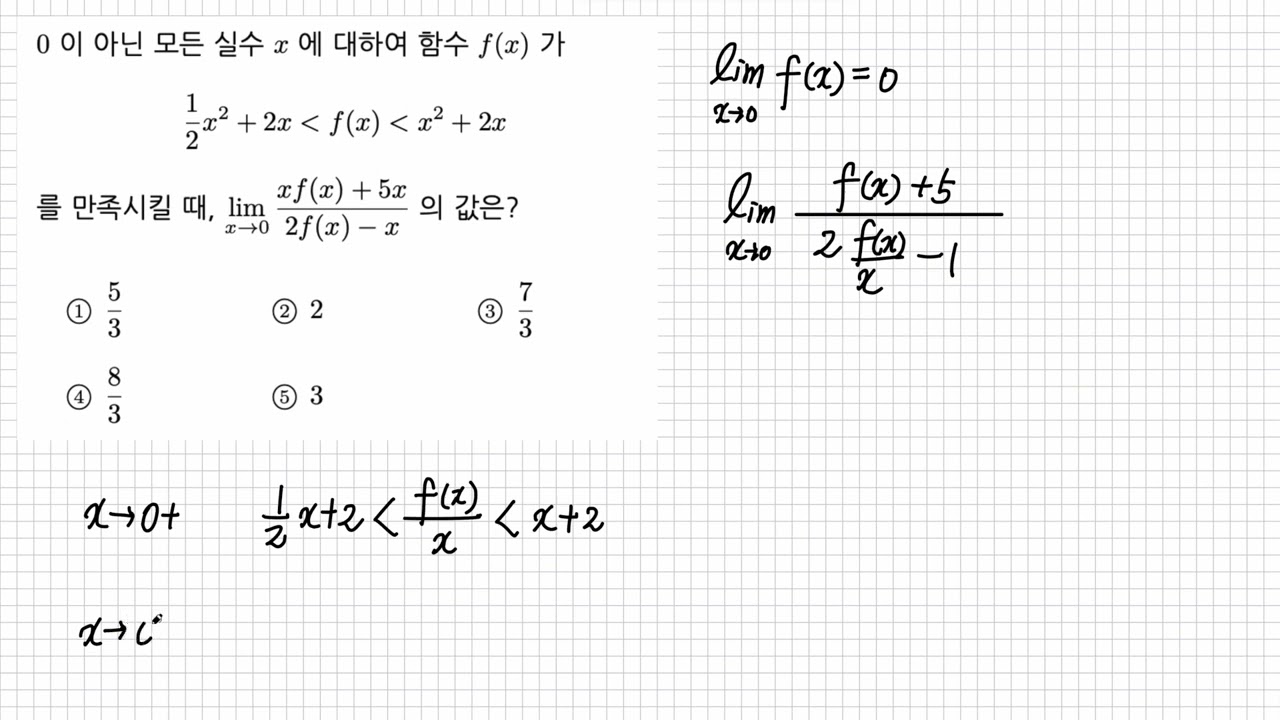 0 이 아닌 모든 실수 x 에 대하여 함수 f(x) 가
\frac{1}{2}x^2 + 2x < f(x) < x^2 + 2x
를 만족시킬 때, \lim_{x \to 0} \frac{xf(x) + 5x}{2f(x) - x} 의 값은?
① \frac{5}{3} ② 2 ③ \frac{7}{3}
④ \frac{8}{3} ⑤ 3
\lim_{x \to 0} f(x) = 0
\lim_{x \to 0} \frac{f(x) + 5}{2 \frac{f(x)}{x} - 1}
x → 0+ \frac{1}{2}x + 2 < \frac{f(x)}{x} < x + 2
x →